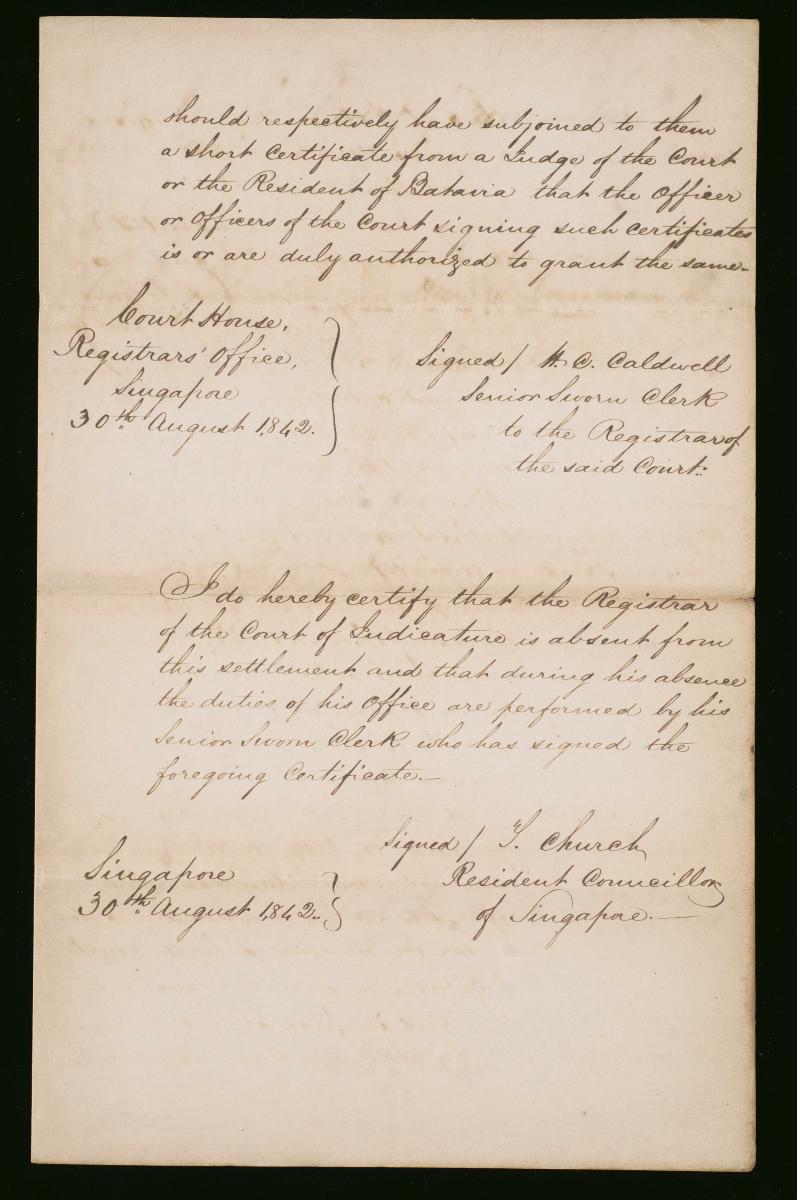 should respectively have subjoined to them
a short Certificate from a Judge of the Court
or the Resident of Batavia that the Officer
or Officers of the Court signing such certificates
is or are duly authorized to grant the same.
Court House,
Registrars' Office,
Singapore
30th August 1842.
Signed / H. C. Caldwell
Senior Sworn Clerk
to the Registrar of
the said Court.
I do hereby certify that the Registrar
of the Court of Judicature is absent from
this settlement and that during his absence
the duties of his Office are performed by his
Senior Sworn Clerk who has signed the
foregoing Certificate.—
Signed / T. Church
Resident Councillor
of Singapore.—
Singapore
30th August 1842.